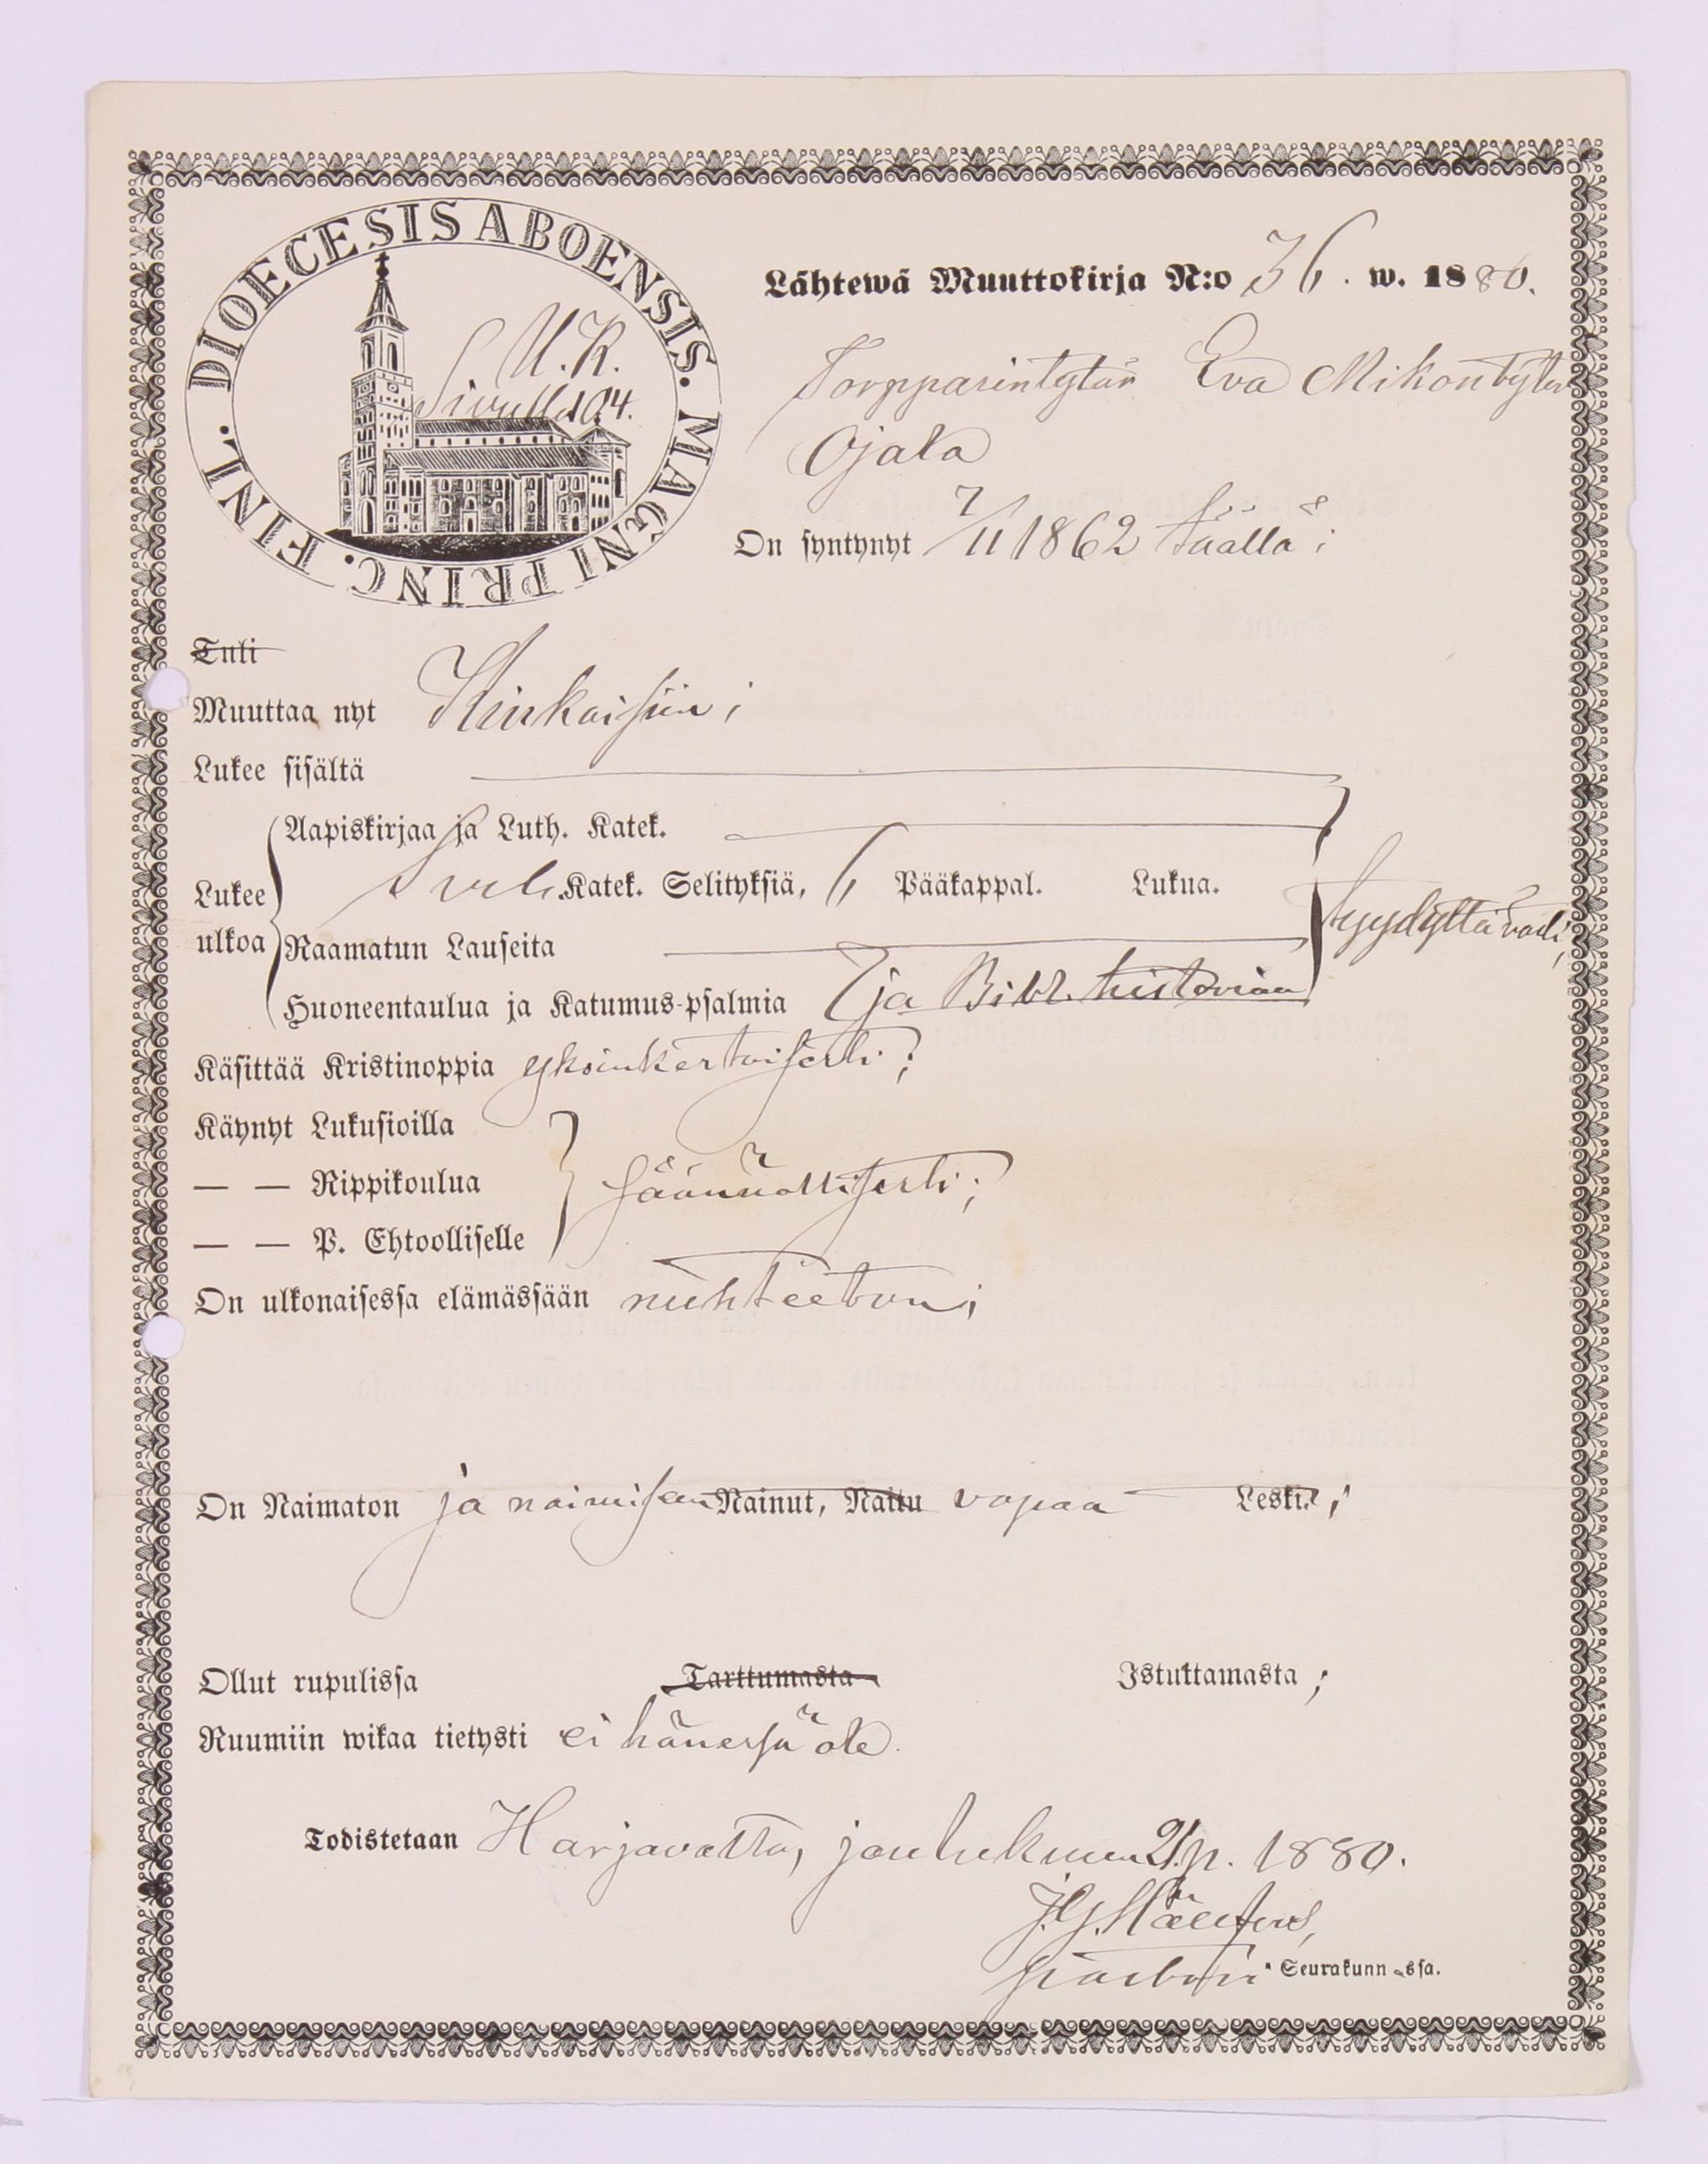 DIOECESIS ABOENSIS. MAGNI PRINC. FINL.
S. M.K.
Sivulla 104.
Lähtewä Muuttokirja N:o 36. w. 1880.
Torpparintytär Eva Mikontytär
Ojala
On syntynyt 7/11 1862 täällä;
Tuli
Muuttaa nyt Kiukaisiin;
Lukee sisältä
Aapiskirjaa ja Luth. Katek.
Lukee Katek. Selityksiä, 6 Pääkappal. Lukua. tyydyttävästi;
ulkoa Raamatun Lauseita
Huoneentaulua ja Katumus-psalmia 7 ja Bibl. historiaa
Käsittää Kristinoppia yksinkertaisesti;
Käynyt Lukusioilla
— — Rippikoulua säännöllisesti;
— — P. Ehtoolliselle
On ulkonaisessa elämässään nuhteeton;
On Naimaton ja naimiseen Nainut, Naitu vapaa Leski. ;
Ollut rupulissa Tarttumasta Istuttamasta ;
Ruumiin wikaa tietysti ei hänessä ole.
Todistetaan Harjavalta, joulukuun 21 p. 1880.
J.G.
pastori Seurakunnassa.